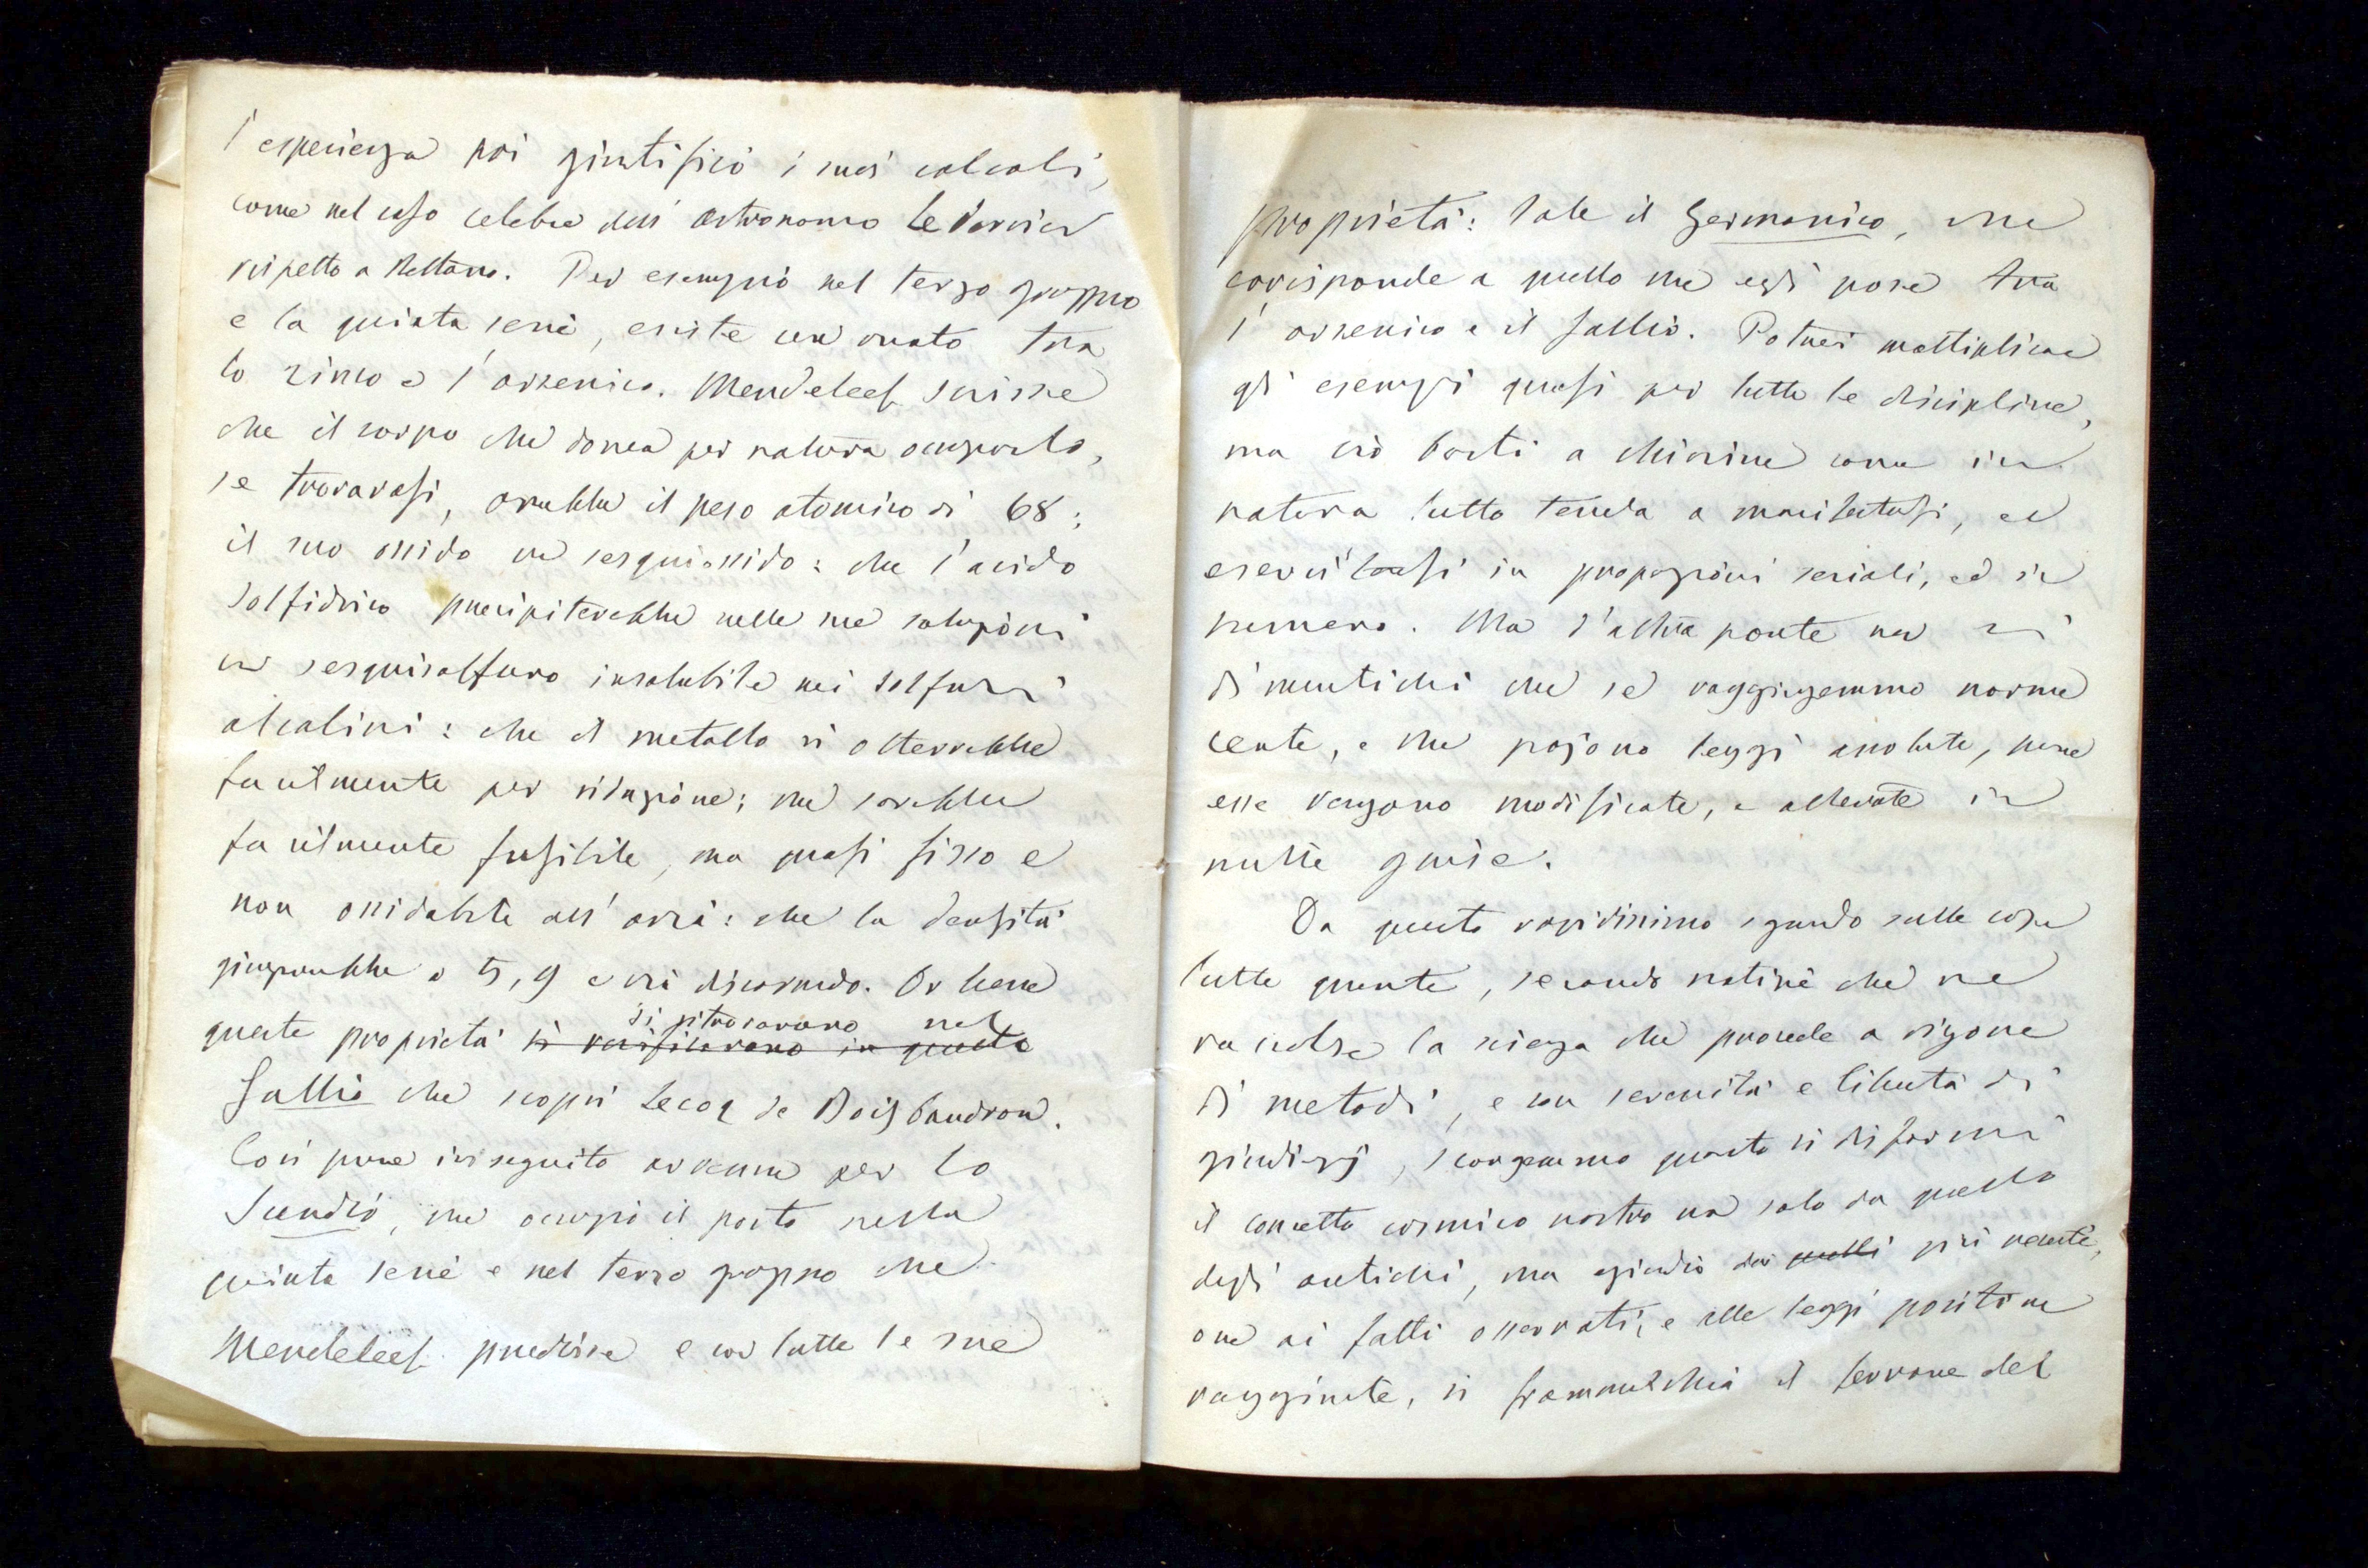 l'esperienza poi giustificò i suoi calcoli,
come nel caso celebre dell'astronomo Leverrier
rispetto a Nettuno. Per esempio nel terzo gruppo
e la quinta serie, esiste un vuoto tra
lo zinco e l'arsenico. Mendeleef scrisse
che il corpo che dovea per natura occuparlo,
se trovavasi, avrebbe il peso atomico di 68:
il suo ossido un sesquiossido: che l'acido
solfidrico precipiterebbe nelle sue soluzioni
un sesquisolfuro insolubile nei solfuri
alcalini: che il metallo si otterrebbe
facilmente per riduzione; che sarebbe
facilmente fusibile, ma quasi fisso e
non ossidabile all'aria: che la densità
giungerebbe a 5,9 e via discorrendo. Or bene
si ritrovarono nel
queste proprietà si verificarono in questo
Gallio che scoprì Lecoq de Boisbaudran.
Così pure in seguito avvenne per lo
Scandio, che occupò il posto nella
quinta serie e nel terzo gruppo che
Mendeleef predisse e con tutte le sue
proprietà: tale il Germanico, che
corrisponde a quello che egli pose tra
l'arsenico e il Gallio. Potrei moltiplicare
gli esempi quasi per tutte le discipline,
ma ciò basti a chiarire come in
natura tutto tenda a manifestarsi, ed
esercitarsi in proporzioni seriali, ed in
numero. Ma d'altra parte non si
dimentichi che se raggiugemmo norme
certe, e che pajono leggi assolute, pure
esse vengono modificate, e alterate in
mille guise.
Da questo rapidissimo sguardo sulle cose
tutte quante, secondo notizie che ne
raccolse la scienza che procede a rigore
di metodi, e con serenità e libertà di
giudizj, scorgemmo quanto si difformi
il concetto cosmico nostro non solo da quello
degli antichi, ma eziandio dai quelli più recenti,
ove ai fatti osservati, e alle leggi positive
raggiunte, si frammischia il fervore del